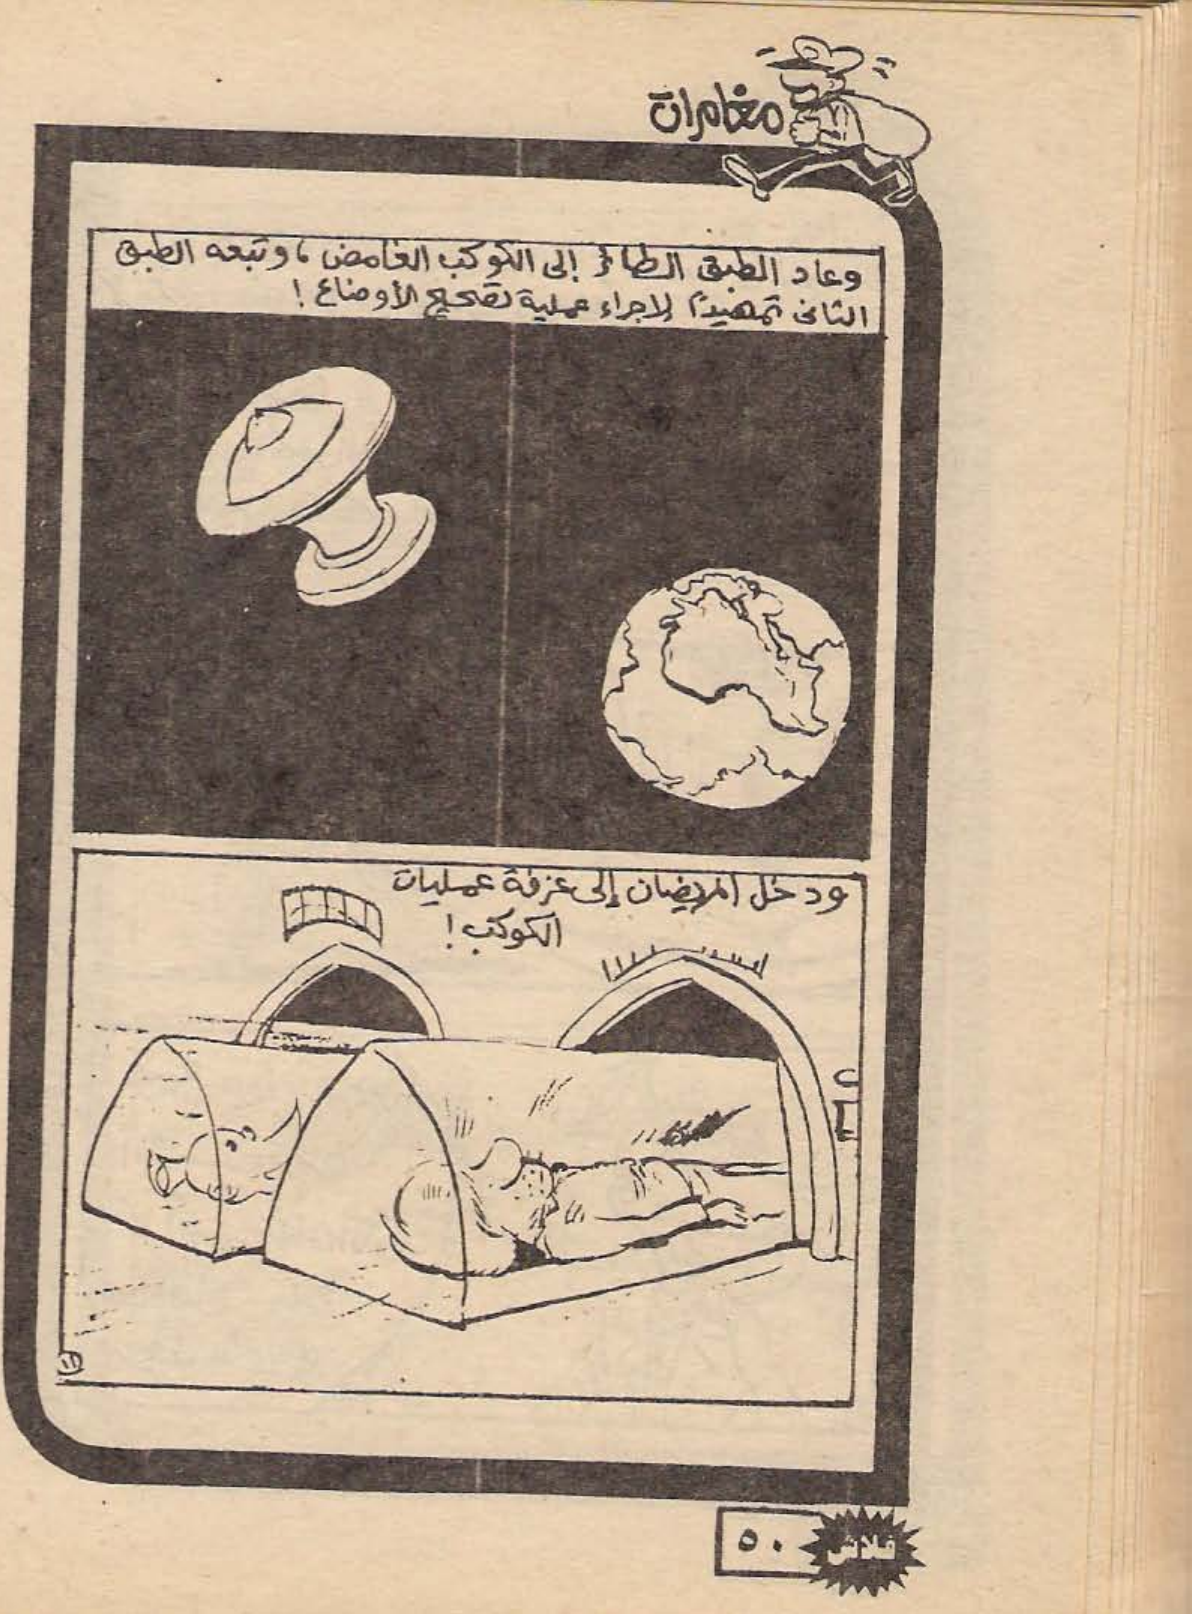 مغامرات
وعاد الطبق الطائر إلى الكوكب الغامض ، وتبعه الطبق
الثانى تمهيداً لإجراء عملية تصحيح الأوضاع !
ودخل المريضان إلى غرفة عمليات
الكوكب !
١١
٥٠
فلاش